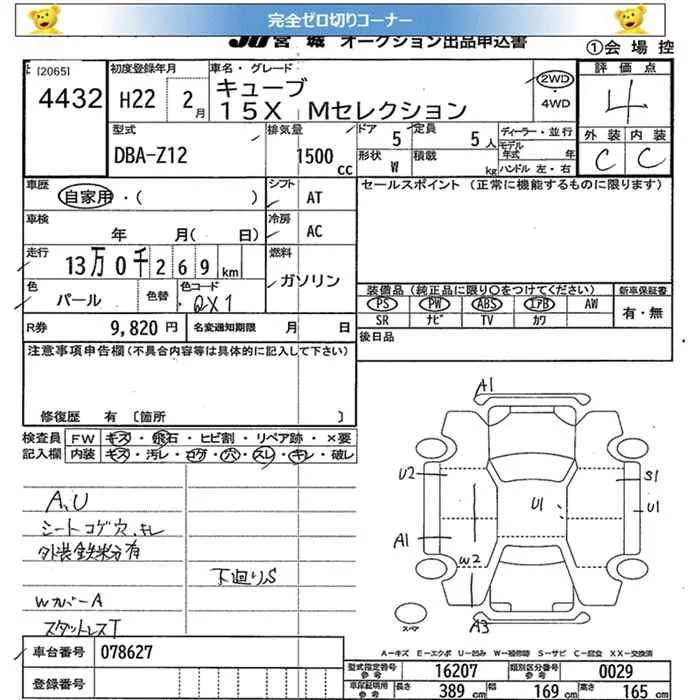 完全ゼロ切りコーナー
JU宮城 オークション出品申込書
①会場控
[2065]
4432
初度登録年月
H22 2月
車名・グレード
キューブ
15X Mセレクション
2WD
・4WD
評価点
4
外装 内装
C C
型式
DBA-Z12
排気量
1500cc
ドア 5
定員 5人
形状 W
積載 kg
ディーラー・並行
モデル年式 年
ハンドル 左・右
車歴
自家用・( )
シフト AT
セールスポイント (正常に機能するものに限ります)
車検
年 月( 日)
冷房 AC
走行
13万0千269km
燃料
ガソリン
色
パール
色替
色コード
QX1
装備品(純正品に限り○をつけてください)
PS PW ABS エアB AW
SR ナビ TV カワ
新車保証書
有・無
R券 9,820円
名変通知期限 月 日
後日品
注意事項申告欄(不具合内容等は具体的に記入して下さい)
修復歴 有 〔箇所 〕
検査員記入欄
FW キズ・飛石・ヒビ割・リペア跡・×要
内装 キズ・汚レ・コゲ・穴・スレ・キレ・破レ
A,U
シートコゲ穴、キレ
外装鉄粉有
下廻りS
WカバーA
スタッドレスT
A1
U2
S1
U1
U1
A1
W2
A3
スペア
A-キズ E-エクボ U-凹み W-補修跡 S-サビ C-腐食 XX-交換済
車台番号 078627
登録番号
型式指定番号 参考 16207
類別区分番号 参考 0029
車庫証明用 参考
長さ 389 cm
幅 169 cm
高さ 165 cm